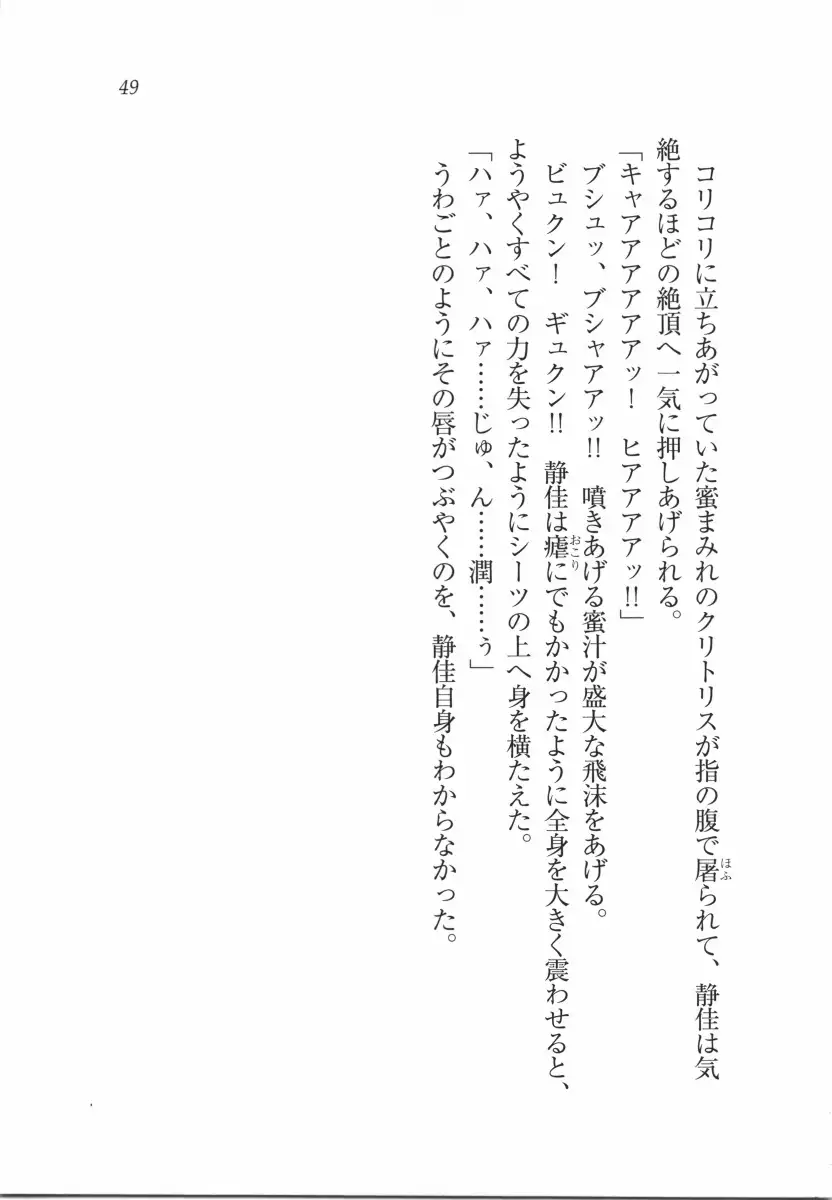 49
コリコリに立ちあがっていた蜜まみれのクリトリスが指の腹で屠られて、静佳は気
ほふ
絶するほどの絶頂へ一気に押しあげられる。
「キャアアアアアアッ！　ヒアアアアッ‼」
ブシュッ、ブシャアアッ‼　噴きあげる蜜汁が盛大な飛沫をあげる。
ビュクン！　ギュクン‼　静佳は瘧にでもかかったように全身を大きく震わせると、
おこり
ようやくすべての力を失ったようにシーツの上へ身を横たえた。
「ハァ、ハァ、ハァ……じゅ、ん……潤……ぅ」
うわごとのようにその唇がつぶやくのを、静佳自身もわからなかった。